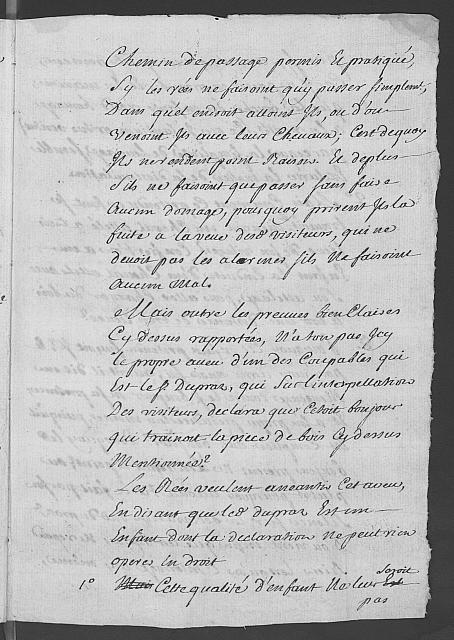 Chemin de passage permis et pratiqué,
Sy les rées ne faisoint qu'y passer simplem.t,
Dans quel endroit alloint Ils, ou d'ou
venoint Ils avec leurs Chevaux; C'est dequoy
Ils ne rendent point Raison. Et de plus
Sils ne faisoint que passer sans faire
Aucun domage, pourquoy prirent Ils la
fuite a la veue desd. visiteurs, qui ne
devoit pas les alarmer s'ils Ne faisoint
Aucun Mal.
Mais outre les preuves bien Claires
Cy dessus rapportées, N'a ton pas Icy
le propre aveu d'un des Coupables qui
Est le S.r Dupraz, qui Sur L'interpellation
Des visiteurs, declara que C'etoit bonjour
qui trainoit la piece de bois Cy dessus
Mentionnée?
Les Rées veulent aneantir Cet aveu,
En disant que led. dupraz Est un
Enfant dont la declaration ne peut rien
operer in droit
1.o Mais Cette qualité d'enfant Ne leur Est seroit
pas